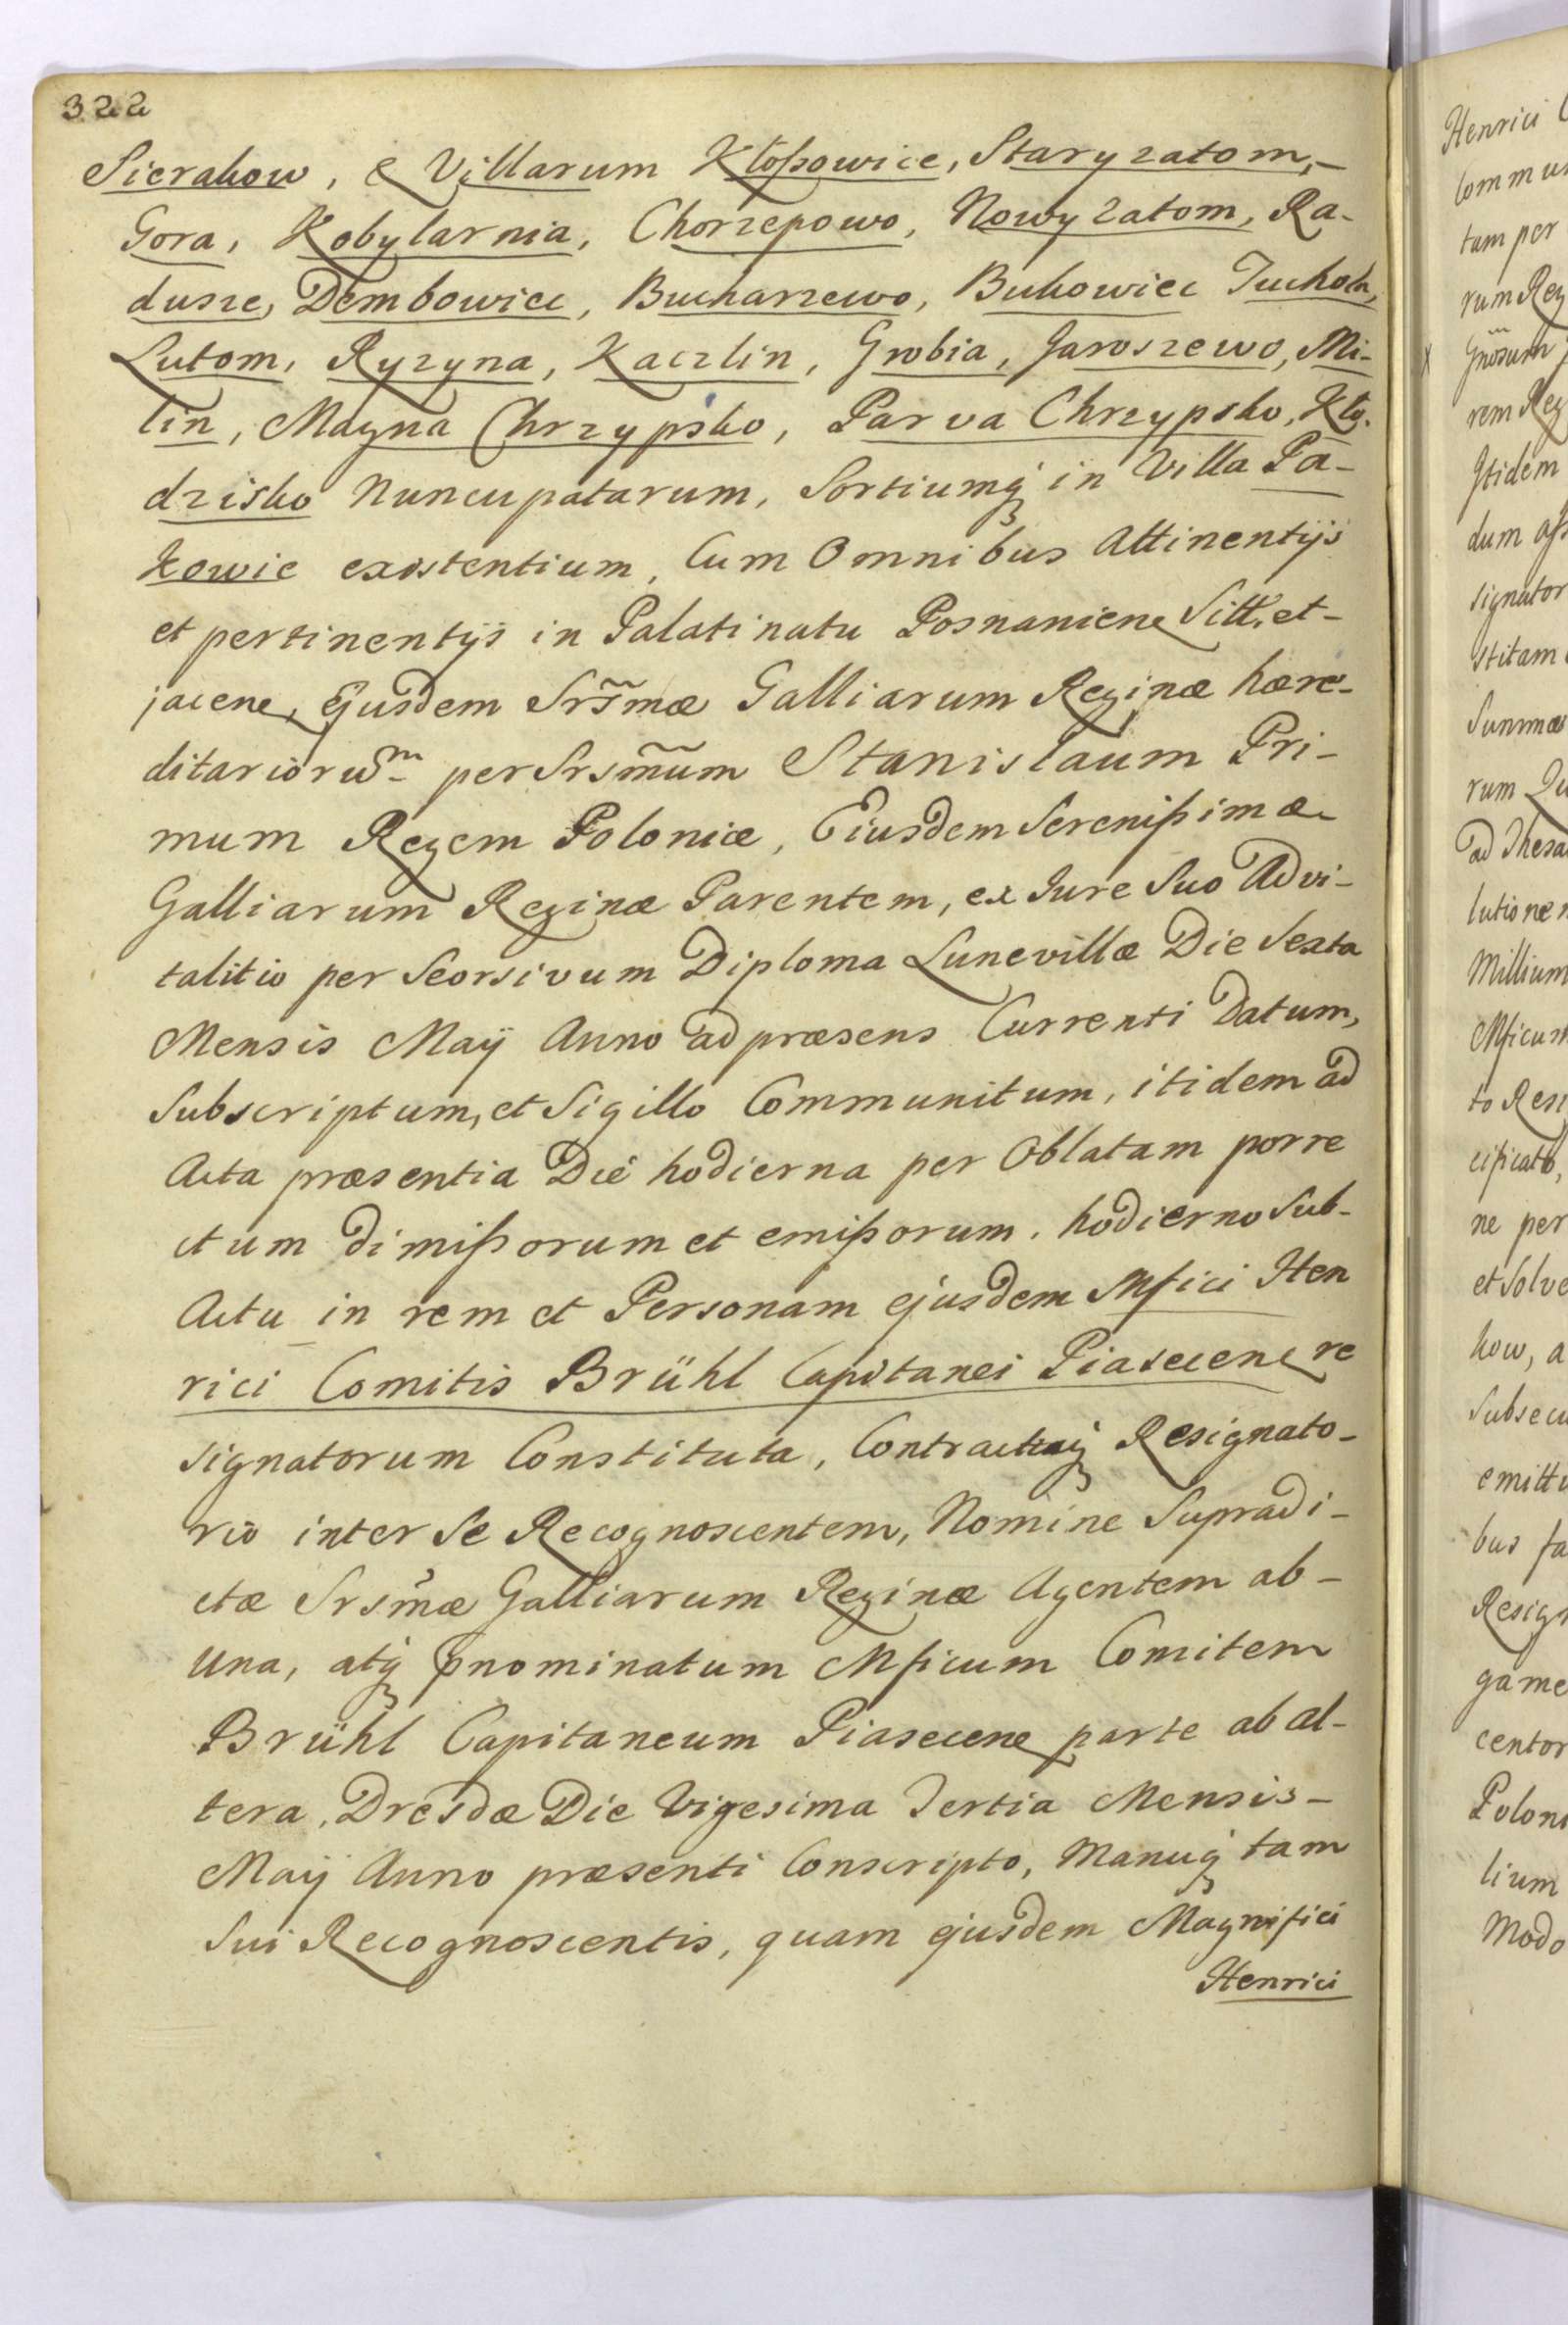 322
Sierakow, & Villarum Kłoßowice, Staryzatom,-
Gora, Kobylarnia, Chorzepowo, Nowy Zatom, Ra-
dusze, Dembowiec, Bucharzewo, Bukowiec Tuchola,
Lutom, Ryzyna, Kaczlin, Grobia, Jaroszewo, Mi-
lin, Magna Chrzypsko, Parva Chrzypsko, Kło-
dzisko Nuncupatarum, Sortiumq in Villa Pa-
kowie existentium, Cum Omnibus Attinentijs
et pertinentijs in Palatinatu Posnaniene Sitt, et-
jacene, Ejusdem Srsmæ Galliarum Reginæ hære-
ditariorum per Srsmum Stanislaum Pri-
mum Regem Poloniæ, Eiusdem Serenißimæ
Galliarum Reginæ Parentem, ex Jure Suo Advi-
talitio per Seorsivum Diploma Lunevillæ Die Sexta
Mensis Maÿ Anno ad præsens Currenti Datum,
Subscriptum, et Sigillo Communitum, itidem ad
Acta præsentia Die hodierna per Oblatam porre
ctum dimißorum et emißorum, hodierno Sub-
Actu in rem et Personam ejusdem Mfici Hen
rici Comitis Brühl Capitanei Piasecene re
signatorum Constituta, Contractuq Resignato-
rio inter Se Recognoscentem, Nomine Supradi-
ctæ Srsmæ Galliarum Reginæ Agentem ab-
una, atq pnominatum Mficum Comitem
Brühl Capitaneum Piasecene parte ab al-
tera, Dresdæ Die Vigesima Tertia Mensis-
Maÿ Anno præsenti Conscripto, Manuq tam
Sui Recognoscentis, quam ejusdem Magnifici
Henrici
Henrici
tam per
rum Reg
rem Reg
Itidem
signator
stitam
rum
Millium
to Resi
ne per
et Solve
kow, a
bus fa
centor
lium
Modo